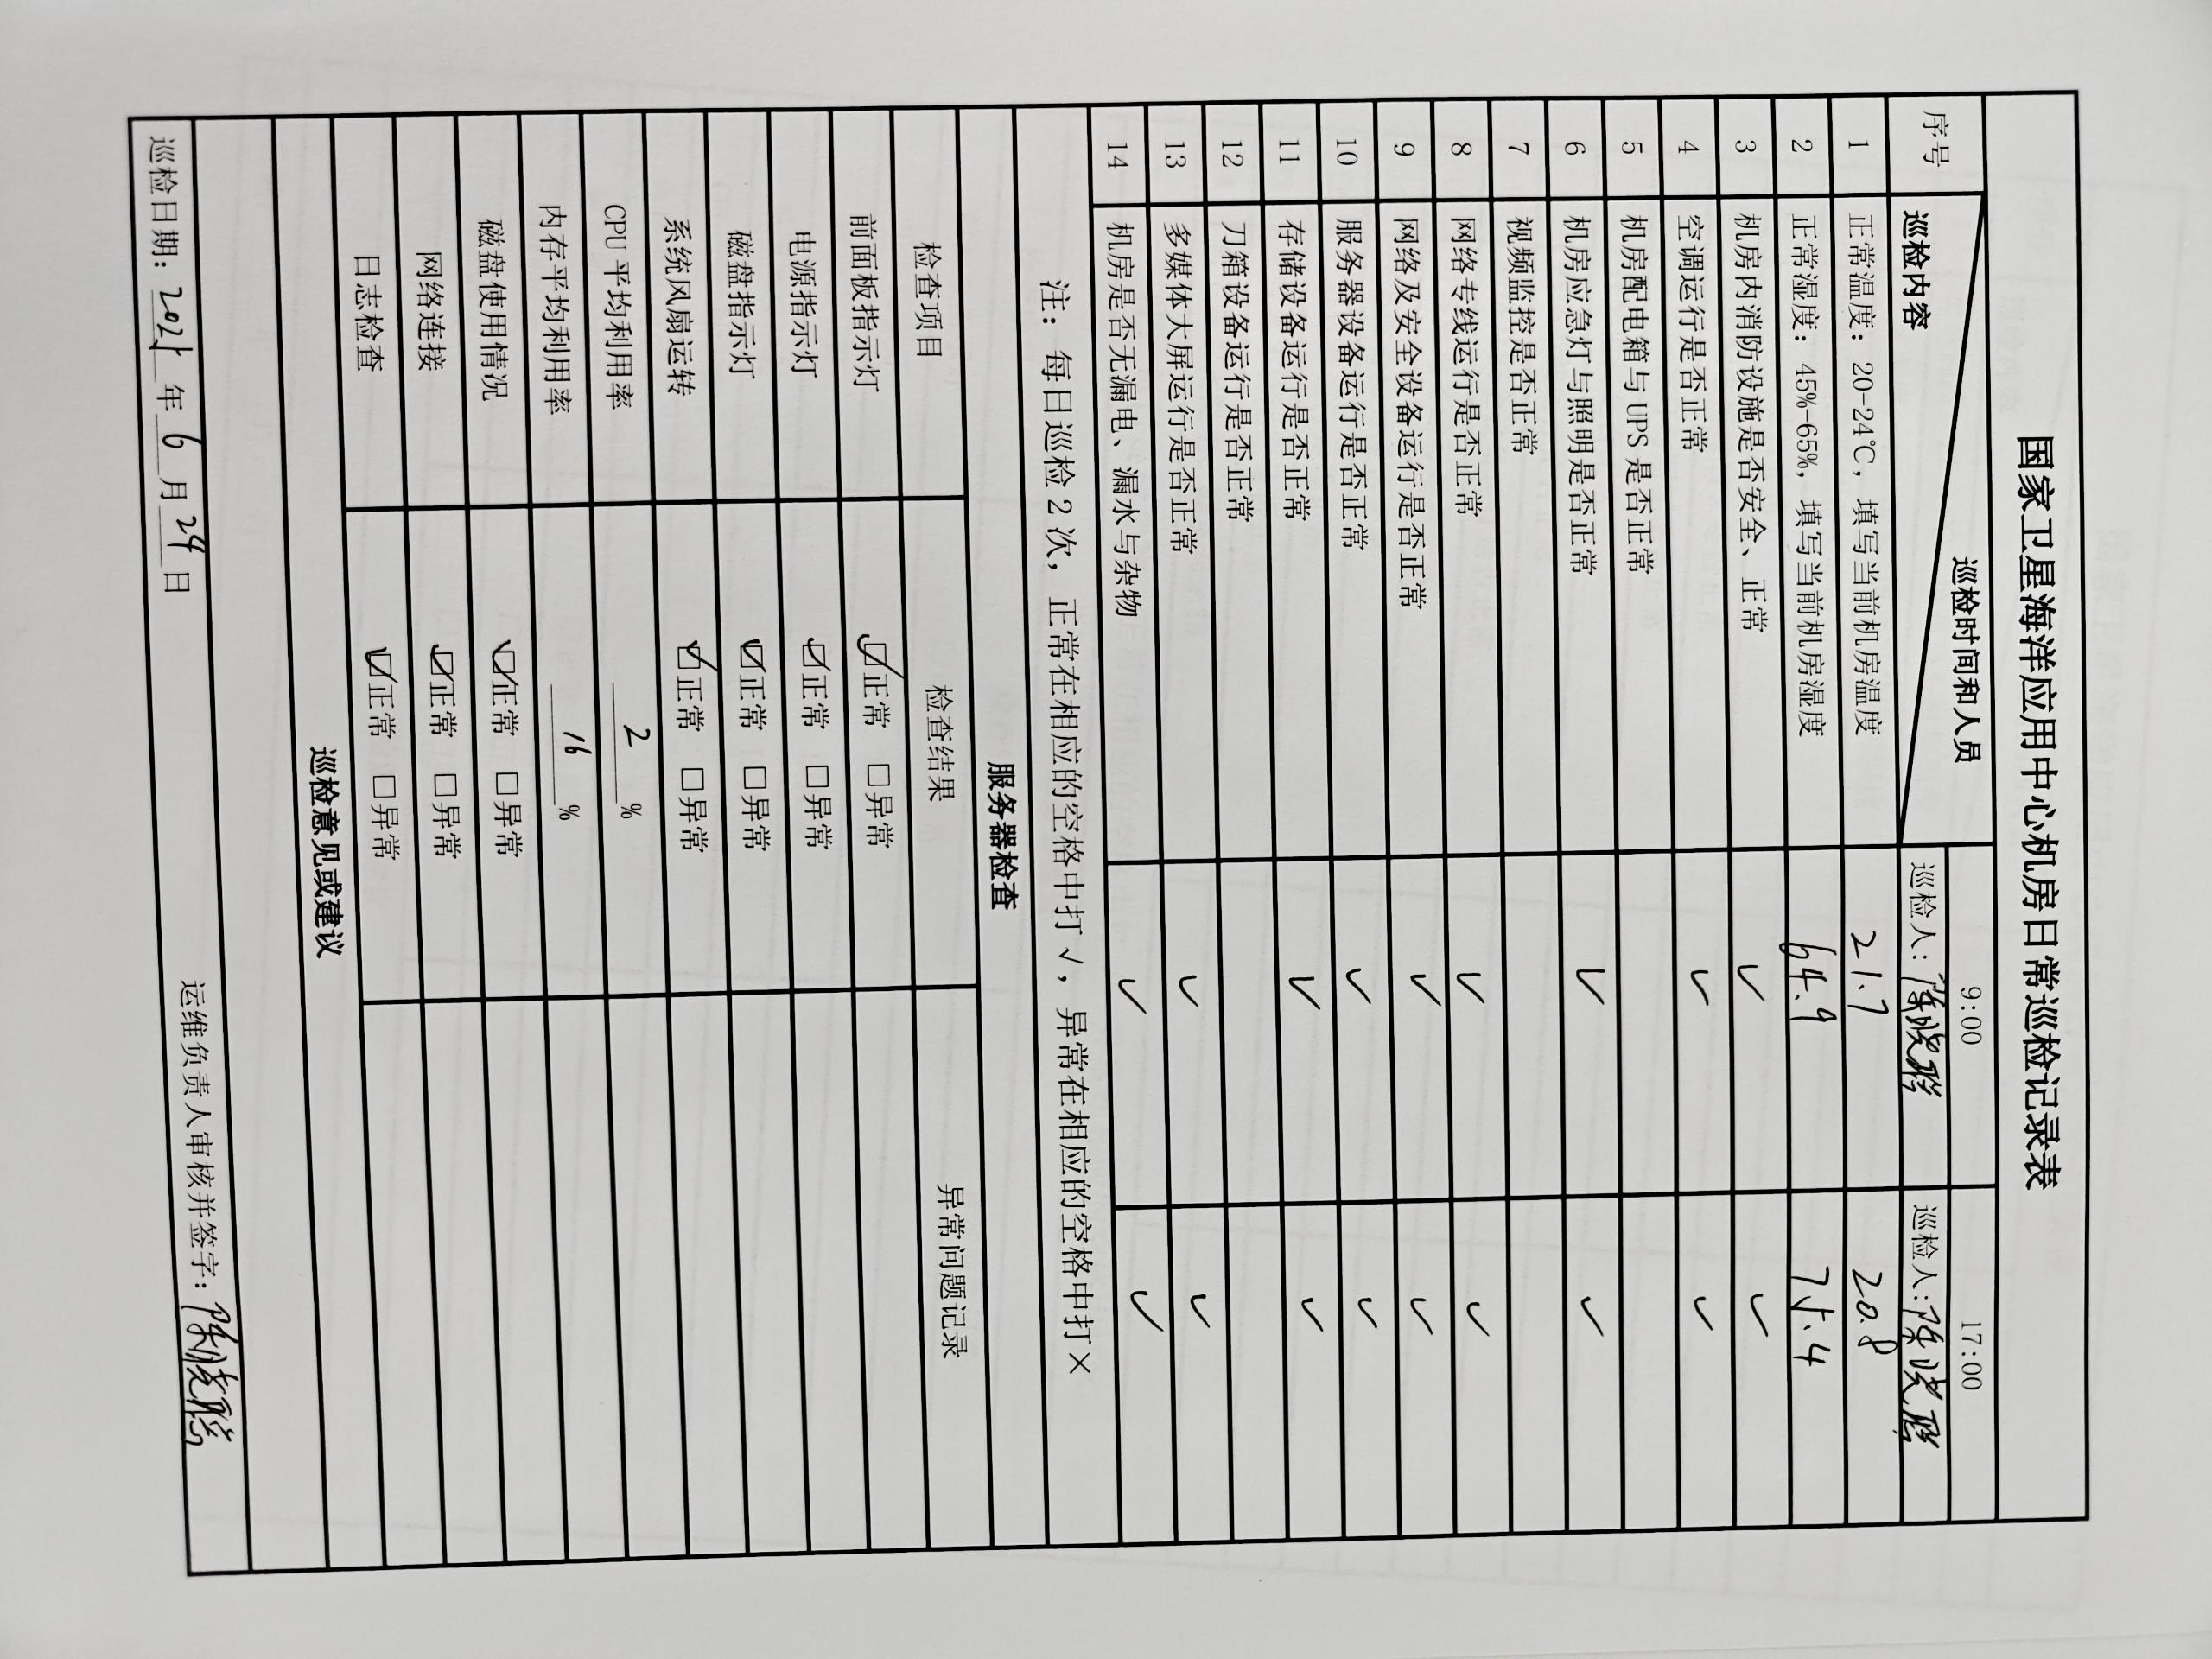 国家卫星海洋应用中心机房日常巡检记录表
序号 巡检时间和人员 9:00 17:00
巡检内容 巡检人: 陈晓 巡检人: 陈晓
1 正常温度: 20-24℃, 填写当前机房温度 21.7 20.8
2 正常湿度: 45%-65%, 填写当前机房湿度 64.9 75.4
3 机房内消防设施是否安全、正常 ✓ ✓
4 空调运行是否正常 ✓ ✓
5 机房配电箱与UPS 是否正常
6 机房应急灯与照明是否正常 ✓ ✓
7 视频监控是否正常
8 网络专线运行是否正常 ✓ ✓
9 网络及安全设备运行是否正常 ✓ ✓
10 服务器设备运行是否正常 ✓ ✓
11 存储设备运行是否正常 ✓ ✓
12 刀箱设备运行是否正常
13 多媒体大屏运行是否正常 ✓ ✓
14 机房是否无漏电、漏水与杂物 ✓ ✓
注: 每日巡检 2 次, 正常在相应的空格中打 √, 异常在相应的空格中打×
服务器检查
检查项目 检查结果 异常问题记录
前面板指示灯 ☑正常 □异常
电源指示灯 ☑正常 □异常
磁盘指示灯 ☑正常 □异常
系统风扇运转 ☑正常 □异常
CPU 平均利用率 2 %
内存平均利用率 16 %
磁盘使用情况 ☑正常 □异常
网络连接 ☑正常 □异常
日志检查 ☑正常 □异常
巡检意见或建议
运维负责人审核并签字: 陈晓
巡检日期: 2021 年 6 月 24 日